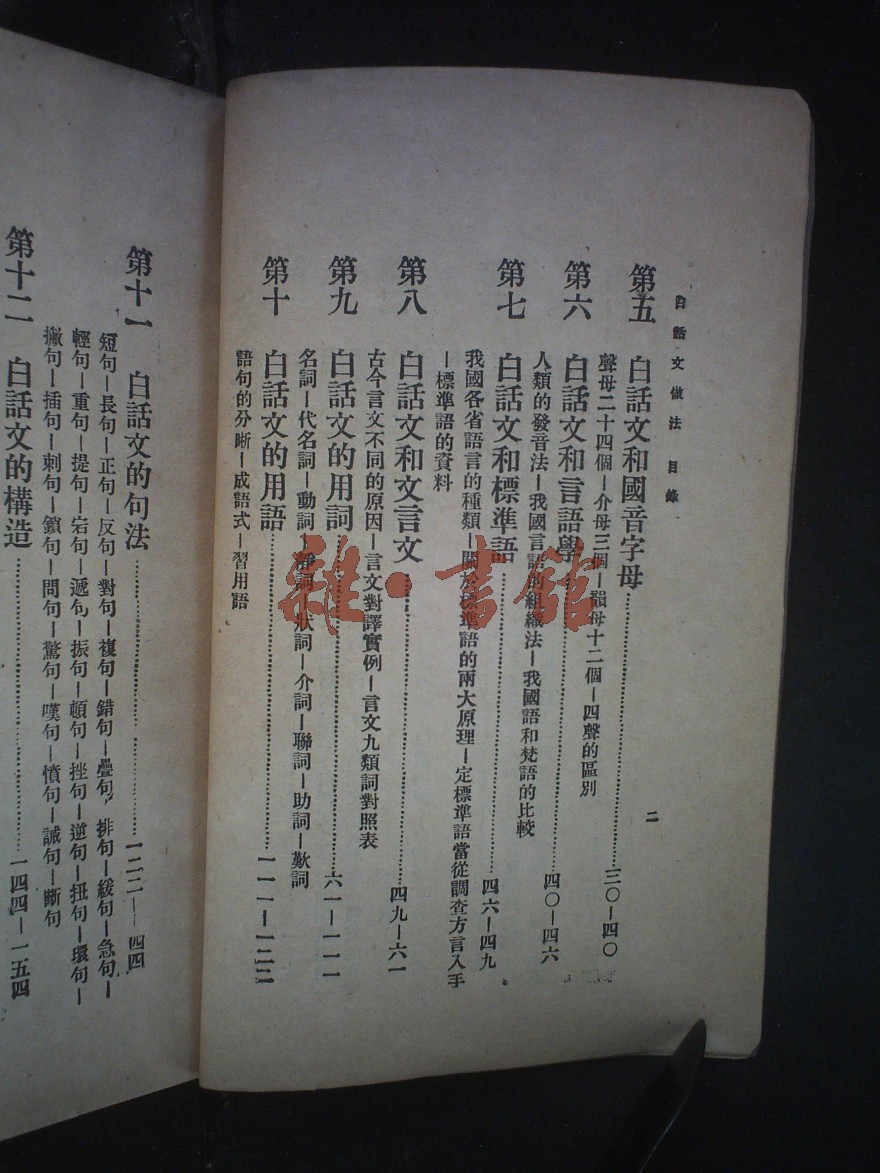 白話文做法 目錄
二
第五 白話文和國音字母……三〇—四〇
聲母二十四個—介母三個—韻母十二個—四聲的區別
第六 白話文和言語學……四〇—四六
人類的發音法—我國言語的組織法—我國語和梵語的比較
第七 白話文和標準語……四六—四九
我國各省語言的種類—關於標準語的兩大原理—定標準語當從調查方言入手
—標準語的資料
第八 白話文和文言文……四九—六一
古今言文不同的原因—言文對譯實例—言文九類詞對照表
第九 白話文的用詞……六一—一一一
名詞—代名詞—動詞—靜詞—狀詞—介詞—聯詞—助詞—歎詞
第十 白話文的用語……一一一—一二二
語句的分晰—成語式—習用語
第十一 白話文的句法……一二二—一四四
短句—長句—正句—反句—對句—複句—錯句—疊句—排句—緩句—急句—
輕句—重句—提句—宕句—遞句—振句—頓句—挫句—逆句—扭句—環句—
撇句—插句—刺句—鎖句—問句—驚句—嘆句—憤句—誡句—斷句
第十二 白話文的構造……一四四—一五四
雜·書館